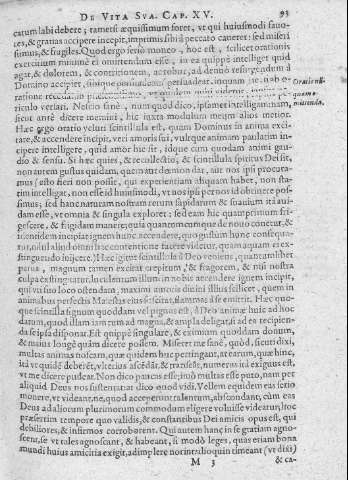 DE VITA SVA. CAP. XV. 93
catum labi debere; tametsi æquissimum foret, vt qui huiusmodi fauo-
res, & gratias accipere incepit, imprimis sibi à peccato caueret: sed miseri
sumus, & fragiles. Quod ergo serio moneo, hoc est, scilicet orationis
exercitium minimè ei omittendum esse, in ea quippe intelliget quid
agat, & dolorem, & contritionem, ac robur, ad denuò resurgendum à
Domino accipiet,
Oratio nūquam omittenda.
riculo versari. Nescio sanè, num quod dico, ipsamet intelligam nam,
sicut antè dicere memini, hic iuxta modulum meum alios metior.
Hæc ergo oratio veluti scintilla est, quam Dominus in anima exci-
tare, & accendere incipit, veri amoris sui, vultque animam paulatim in-
cipere intelligere, quid amor hic sit, idque cum quodam animi gau-
dio & sensu. Si hæc quies, & recollectio, & scintilla spiritus Dei sit,
non autem gustus quidam, quem aut dæmon dat, aut nos ipsi procura-
mus (etsi fieri non possit, qui experientiam aliquam habet, non sta-
tim intelligat, non esse id huiusmodi, vt nos ipsi per nos id obtinere pos-
simus; sed hanc naturam nostram rerum sapidarum & suauium ita aui-
dam esse, vt omnia & singula exploret: sed eam hic quamprimum fri-
gescere, & frigidam manere; quia quantumcunque de nouo conetur, &
accendere incipiat ignem hunc accendere, quo gustum hunc consequa-
tur, nihil aliud omni hac contentione facere videtur, quam aquam ei ex-
stinguendo iniicere.) Hæc igitur scintilla à Deo veniens, quantumlibet
parua, magnum tamen excitat crepitum, & fragorem, & nisi nostra
culpa exstinguatur, luculentum illum in nobis accendere ignem incipit,
qui vti suo loco ostendam, maximi amoris diuini illius scilicet, quem in
animabus perfectis Maiestas eius suscitat, flammas à se emittit. Hæc quo-
que scintilla signum quoddam vel pignus est, à Deo animæ huic ad hoc
datum, quod illam iam tum ad magna, & ampla deligat, si ad ea recipien-
da se ipsa disponat. Est quippe singulare, & eximium quoddam donum,
& maius longè quàm dicere possem. Miseret me sanè, quòd, sicuti dixi,
multas animas noscam, quæ quidem huc pertingant, at earum, quæ hinc,
ita vt quidē deberēt, vlterius ascēdāt, & transeāt, numerus ita exiguus est,
vt me dicere pudeat. Non dico paucas esse; imò multas esse puto, nam per
aliquid Deus nos sustentat at dico quod vidi. Vellem equidem eas serio
monere, vt videant, ne, quod acceperunt talentum, abscondant, cùm eas
Deus ad aliorum plurimorum commodum eligere voluisse videatur, hoc
præsertim tempore quo validis, & constantibus Dei amicis opus est, qui
debiliores, & infirmos corroborent. Qui autem hanc in se gratiam agno-
scent, se vt tales agnoscant, & habeant, si modò leges, quas etiam bona
mundi huius amicitia exigit, adimplere norint: alioquin timeant (vt dixi)
M 3 & ca-